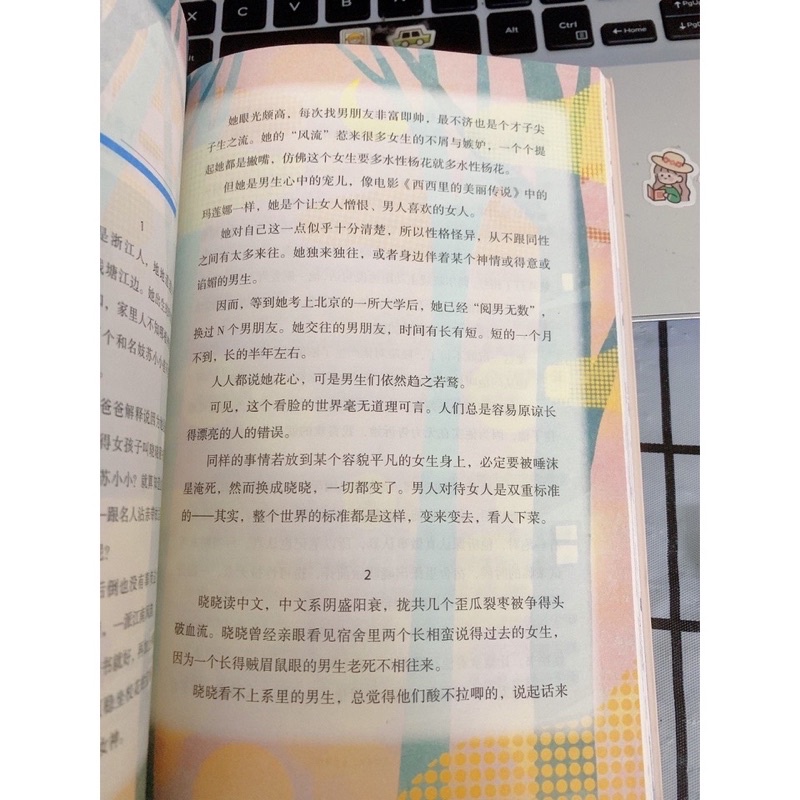 Alt
Ctrl
Home
PgUp
PgDn
1
是浙江人，地地道
钱塘江边。她出生
家里人不知
个和名妓苏小小
爸爸解释说因为
得女孩子叫晓晓
苏小小？就算
跟名人沾亲带
呢？
后倒也没有辜负
女神。
她眼光颇高，每次找男朋友非富即帅，最不济也是个才子尖
子生之流。她的“风流”惹来很多女生的不屑与嫉妒，一个个提
起她都是撇嘴，仿佛这个女生要多水性杨花就多水性杨花。
但她是男生心中的宠儿，像电影《西西里的美丽传说》中的
玛莲娜一样，她是个让女人憎恨、男人喜欢的女人。
她对自己这一点似乎十分清楚，所以性格怪异，从不跟同性
之间有太多来往。她独来独往，或者身边伴着某个神情或得意或
谄媚的男生。
因而，等到她考上北京的一所大学后，她已经“阅男无数”，
换过 N 个男朋友。她交往的男朋友，时间有长有短。短的一个月
不到，长的半年左右。
人人都说她花心，可是男生们依然趋之若鹜。
可见，这个看脸的世界毫无道理可言。人们总是容易原谅长
得漂亮的人的错误。
同样的事情若放到某个容貌平凡的女生身上，必定要被唾沫
星淹死，然而换成晓晓，一切都变了。男人对待女人是双重标准
的——其实，整个世界的标准都是这样，变来变去，看人下菜。
2
晓晓读中文，中文系阴盛阳衰，拢共几个歪瓜裂枣被争得头
破血流。晓晓曾经亲眼看见宿舍里两个长相蛮说得过去的女生，
因为一个长得贼眉鼠眼的男生老死不相往来。
晓晓看不上系里的男生，总觉得他们酸不拉唧的，说起话来